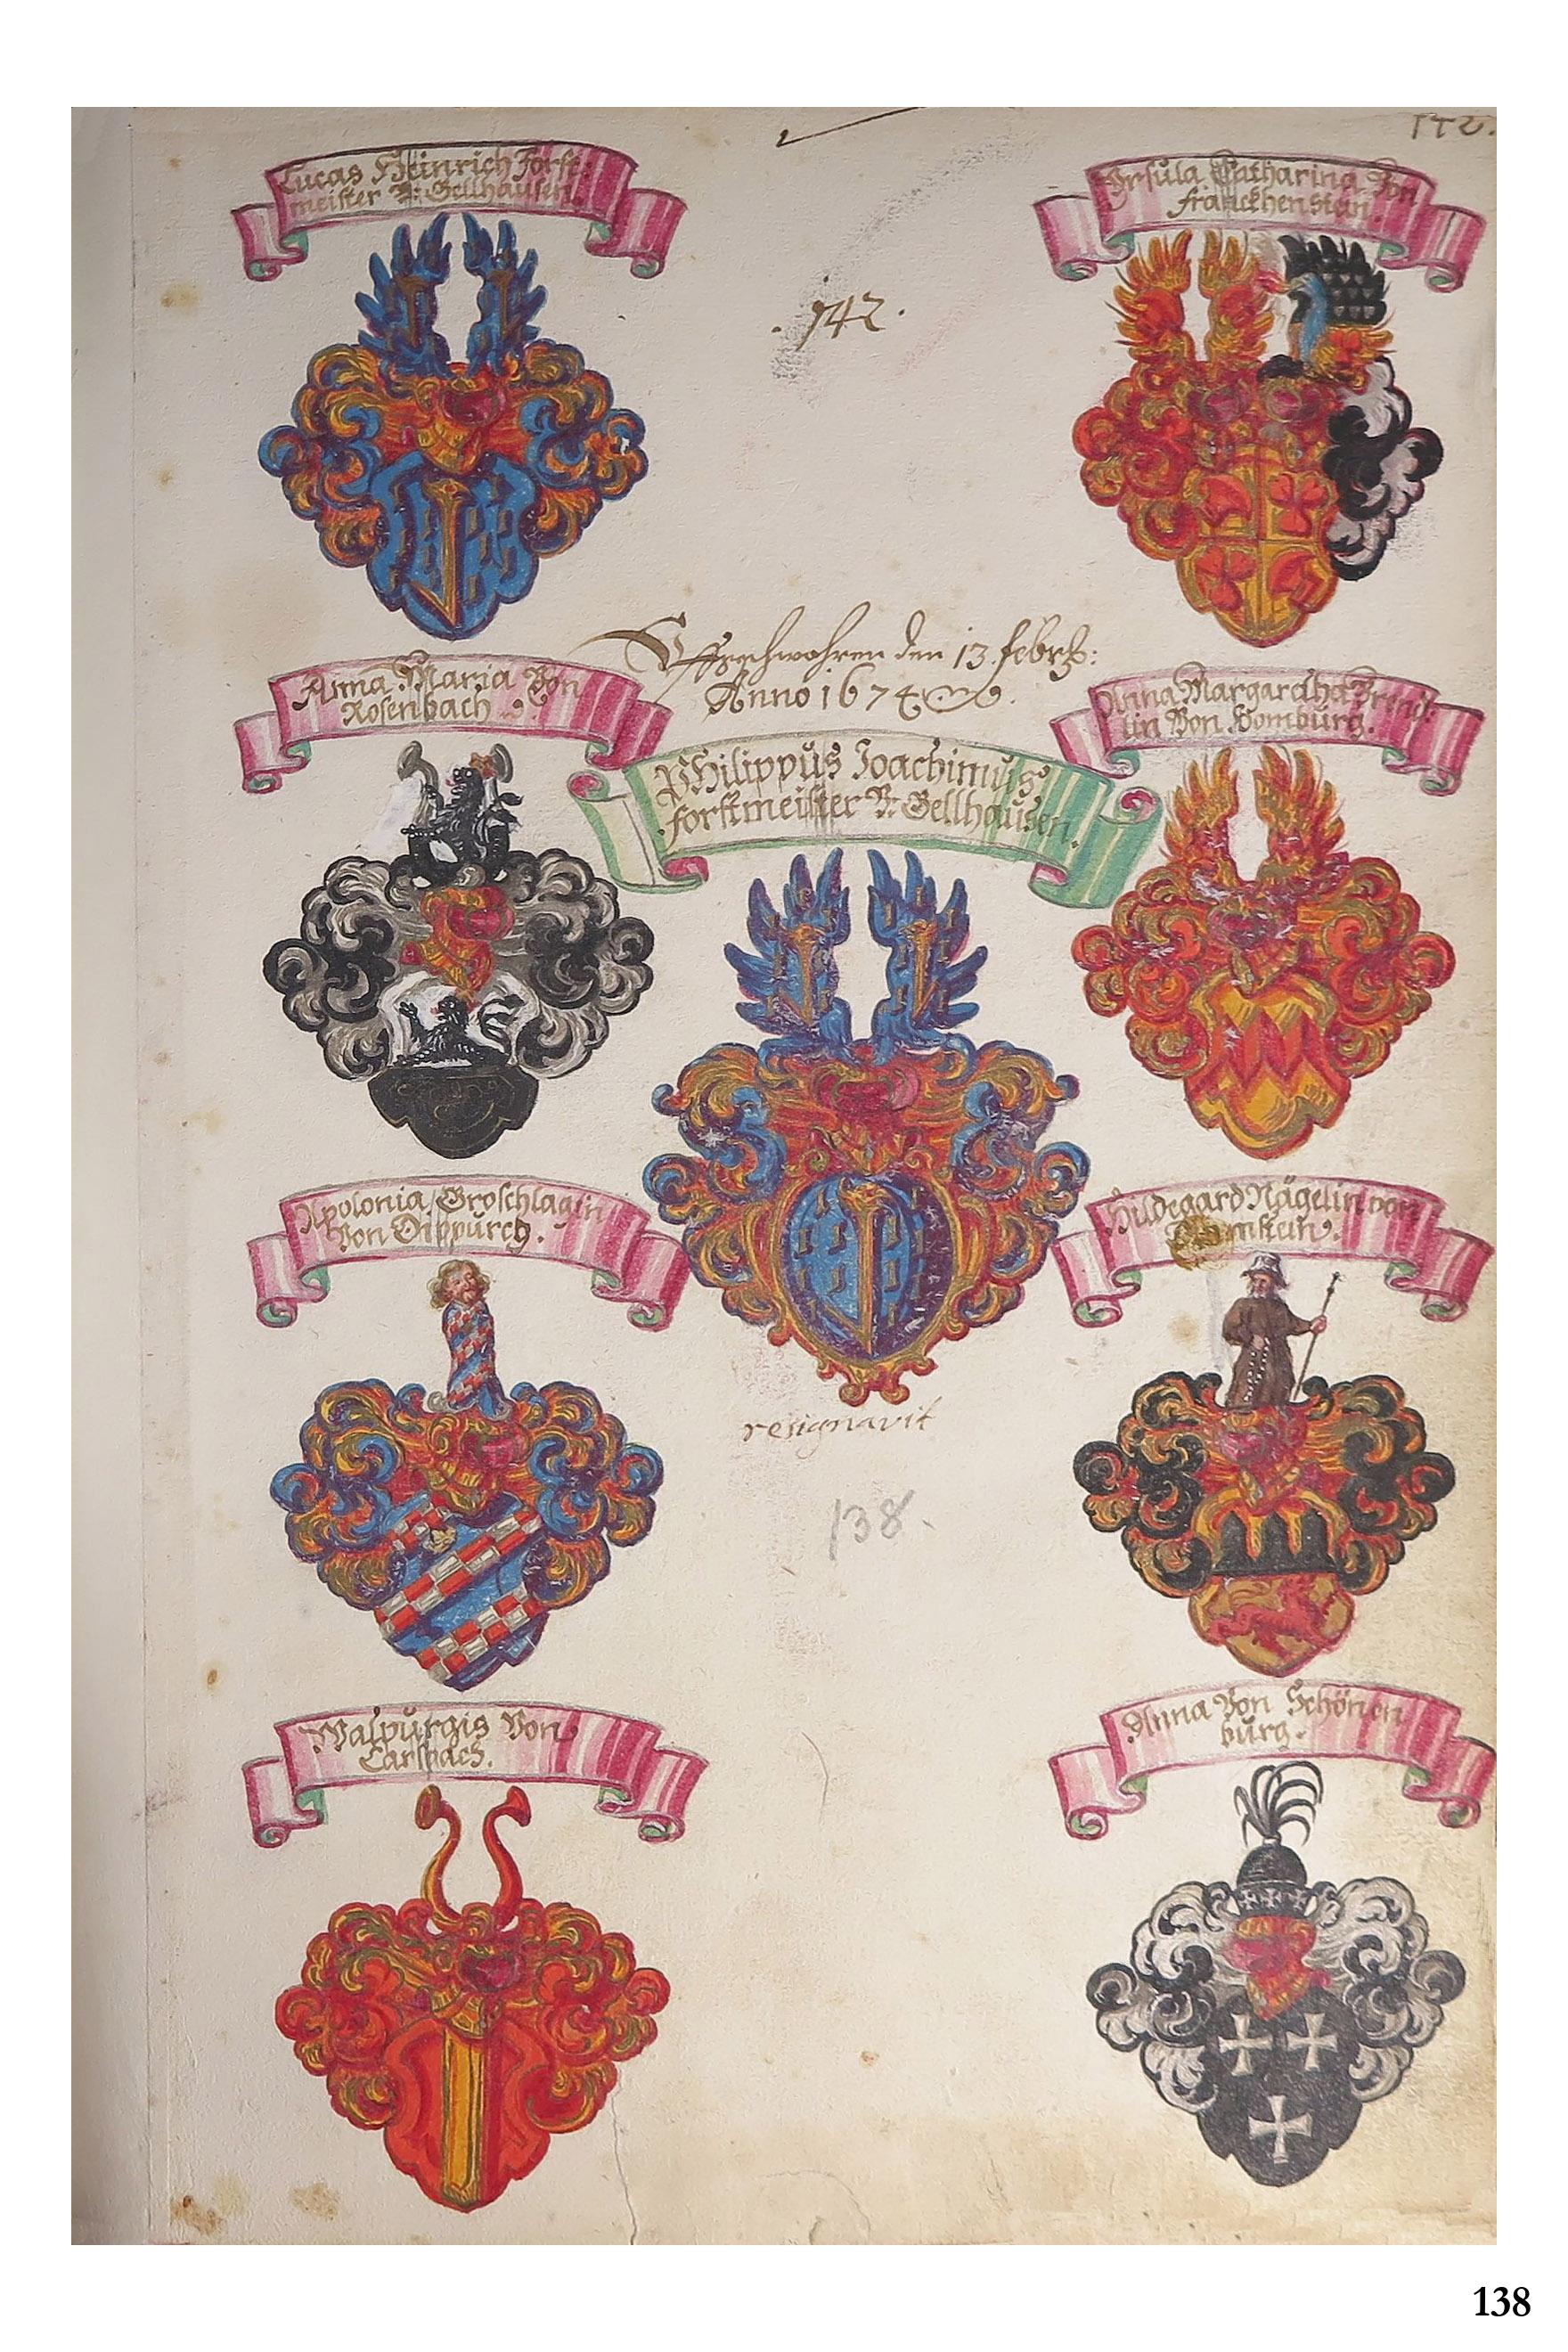 142.
Lucas Heinrich Forst-
meister V: Gellhausen.
Ursula Catharina Von
franckhenstein.
. 142 .
Uffgschwohren den 13. febrʒ:
Anno 1674
Anna Maria Von
Rosenbach
Anna Margaretha Brend-
lin Von Homburg.
PHilippus Joachimus
forstmeister V: Gellhausen.
Apolonia Groschlagin
Von Dippurg.
Hildegard Nägelin von
resignavit
138.
Walpurgis Von
Carspach.
Anna Von Schönen
burg.
138